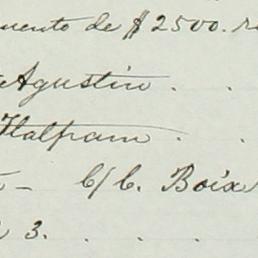 mento de $2500.
Agustin . .
Halfram . .
– C/C. Boix
3. . . .